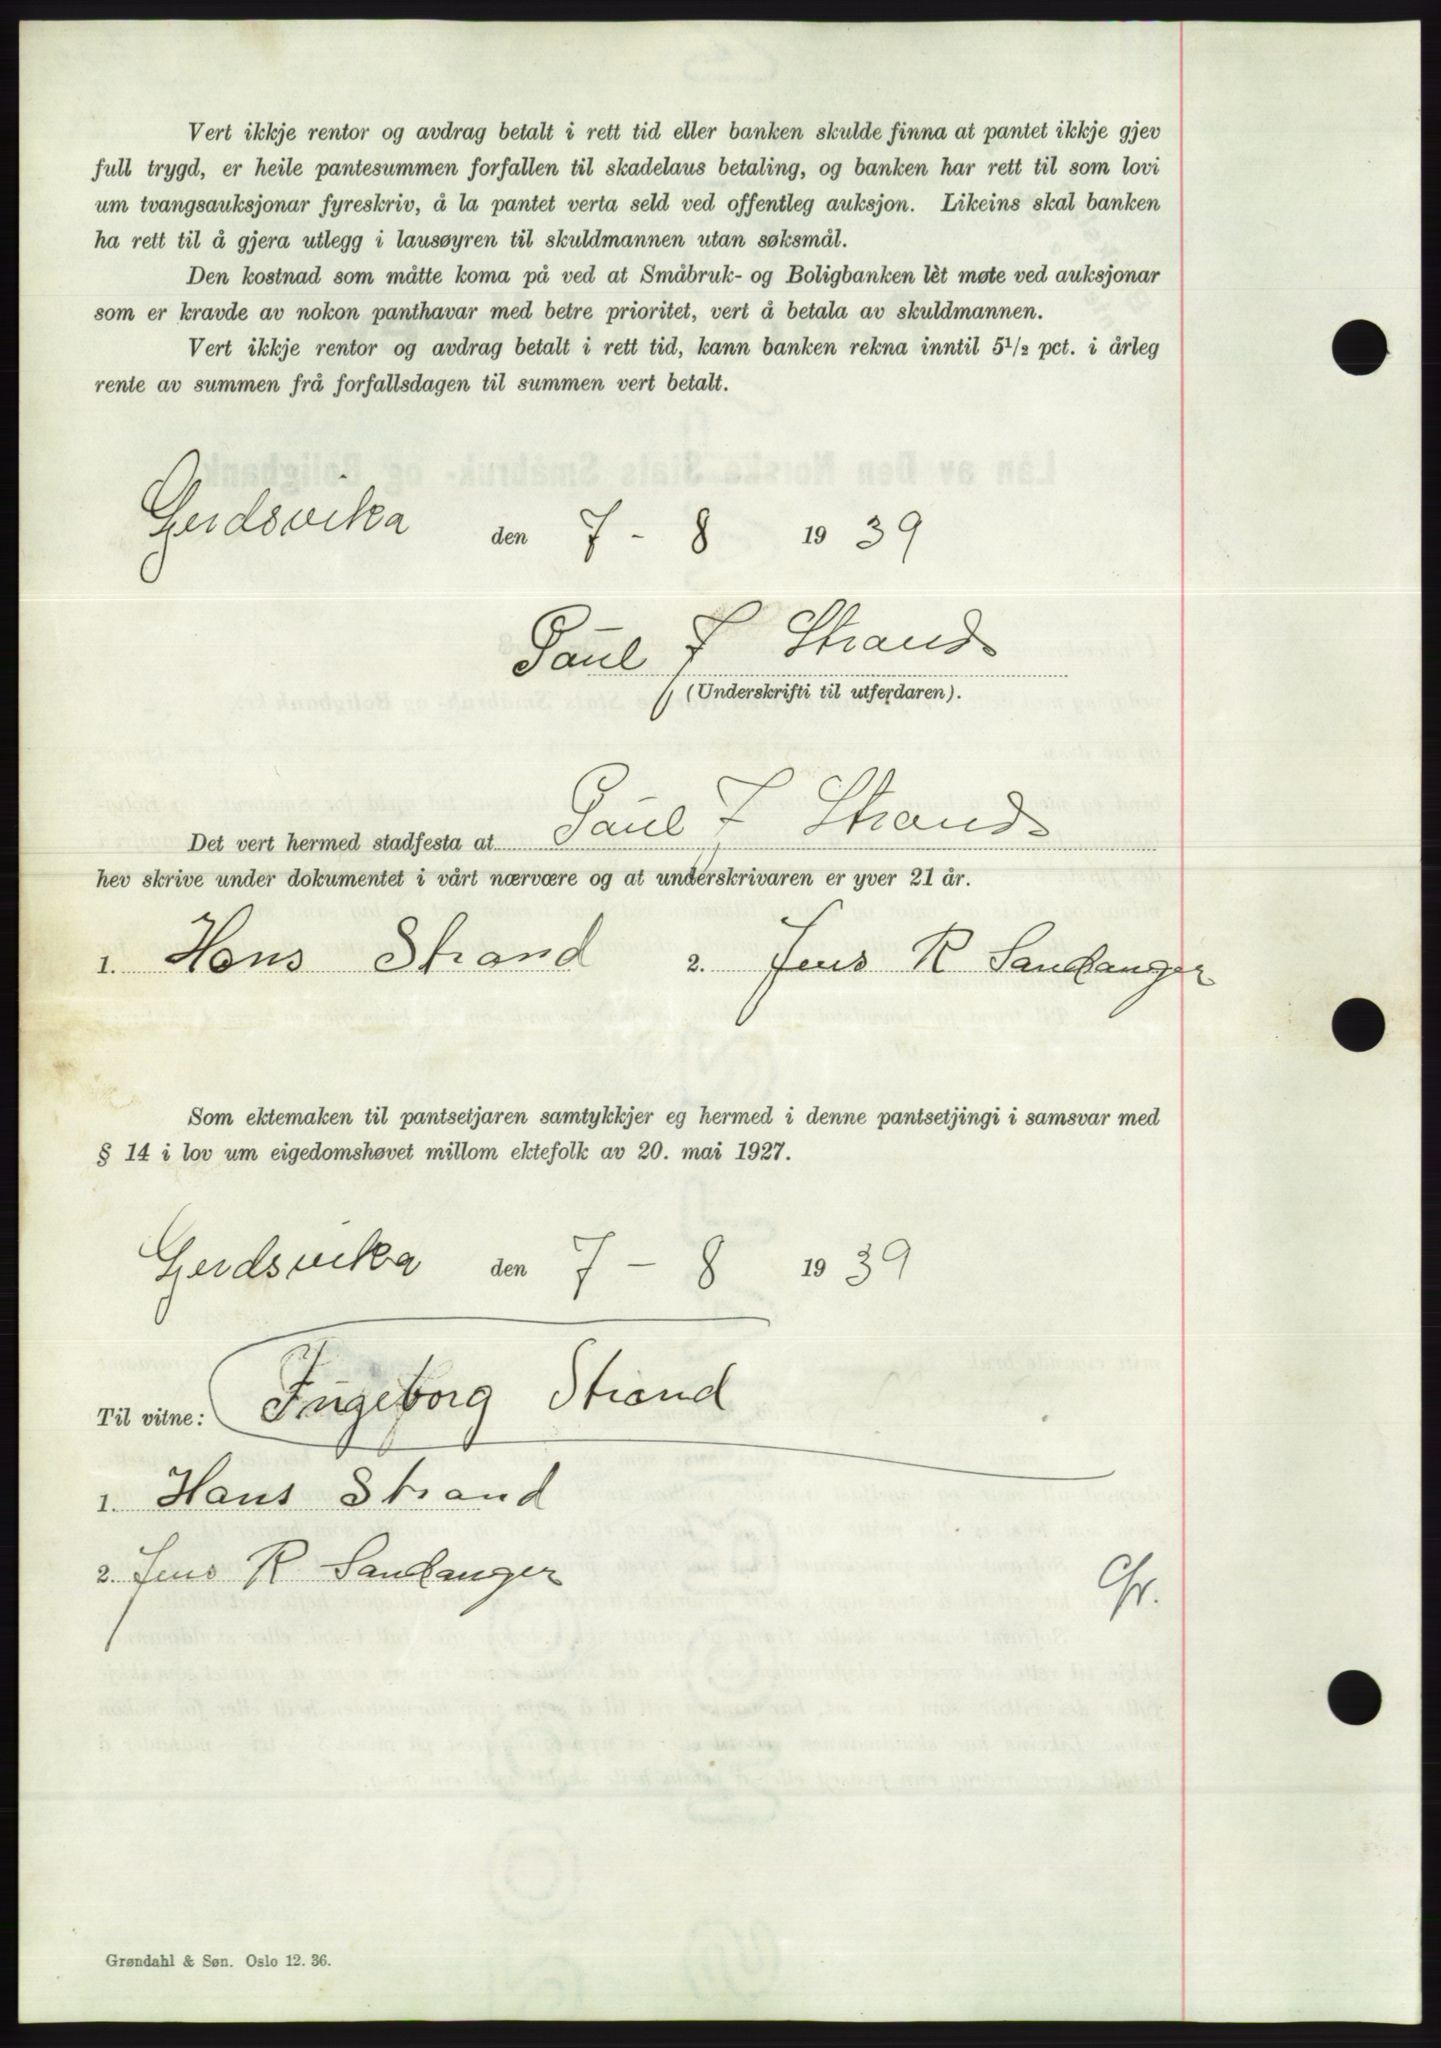 Vert ikkje rentor og avdrag betalt i rett tid eller banken skulde finna at pantet ikkje gjev
full trygd, er heile pantesummen forfallen til skadelaus betaling, og banken har rett til som lovi
um tvangsauksjonar fyreskriv, å la pantet verta seld ved offentleg auksjon. Likeins skal banken
ha rett til å gjera utlegg i lausøyren til skuldmannen utan søksmål.
Den kostnad som måtte koma på ved at Småbruk- og Boligbanken lèt møte ved auksjonar
som er kravde av nokon panthavar med betre prioritet, vert å betala av skuldmannen.
Vert ikkje rentor og avdrag betalt i rett tid, kann banken rekna inntil 5¹/₂ pct. i årleg
rente av summen frå forfallsdagen til summen vert betalt.
Gerdsvika den 7 - 8 19 39
Paul J Strand
(Underskrifti til utferdaren).
Det vert hermed stadfesta at Paul J Strand
hev skrive under dokumentet i vårt nærvære og at underskrivaren er yver 21 år.
1. Hans Strand 2. Jens R Sandanger
Som ektemaken til pantsetjaren samtykkjer eg hermed i denne pantsetjingi i samsvar med
§ 14 i lov um eigedomshøvet millom ektefolk av 20. mai 1927.
Gerdsvika den 7 - 8 19 39
Til vitne: Ingeborg Strand
1. Hans Strand
2. Jens R Sandanger
Grøndahl & Søn. Oslo 12. 36.